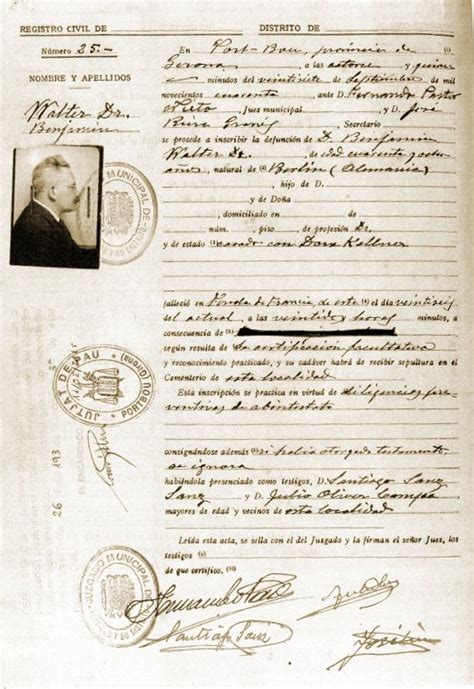 REGISTRO CIVIL DE
DISTRITO DE
Número 25.-
NOMBRE Y APELLIDOS
Walter Dr.
Benjamin
En Port-Bou, provincia de
Gerona, a las catorce y quince
minutos del veintisiete de Septiembre de mil
novecientos cuarenta, ante D. Fernando Pastor
Nieto, Juez municipal, y D. José
, Secretario
se procede a inscribir la defunción de D. Benjamin
Walter Dr. de edad cuarenta y ocho
años, natural de Berlin (Alemania)
hijo de D.
y de Doña
domiciliado en
núm., piso, de profesión Dr.
y de estado casado con Dora Kellner
falleció en de Francia, de esta el día veintiseis
del actual, a las veintidos horas minutos, a
consecuencia de
según resulta de la certificación facultativa
y reconocimiento practicado, y su cadáver habrá de recibir sepultura en el
Cementerio de esta localidad
Esta inscripción se practica en virtud de diligencias pre-
ventivas de abintestato
consignándose además si había otorgado testamento
se ignora
habiéndola presenciado como testigos, D. Santiago Sanz
Sanz y D. Julio Oliver
mayores de edad y vecinos de esta localidad
Leída esta acta, se sella con el del Juzgado y la firman el señor Juez, los
testigos
de que certifico.
JUTJAT DE PAU
PORTBOU (Girona)
EL ENCARGADO
26
193
JUZGADO MUNICIPAL DE